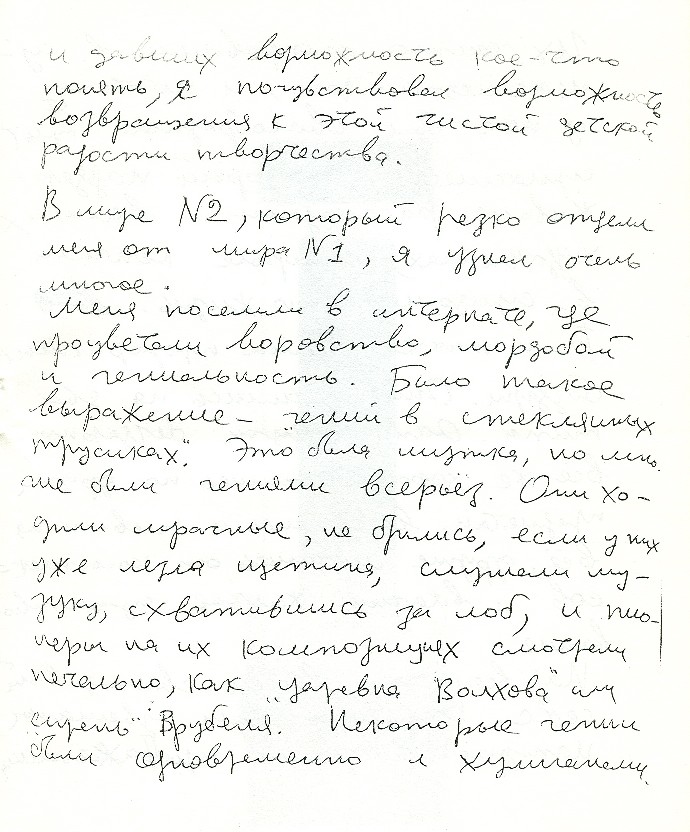 и давших возможность кое-что
понять, я почувствовал возможность
возвращения к этой чистой детской
радости творчества.
В мире N2, который резко отделил
меня от мира N1, я узнал очень
многое.
Меня поселили в интернате, где
процветали воровство, мордобой
и гениальность. Было такое
выражение – "гений в стеклянных
трусиках". Это была шутка, но мно-
гие были гениями всерьёз. Они хо-
дили мрачные, не брились, если у них
уже лезла щетина, слушали му-
зыку, схватившись за лоб, и пио-
неры на их композициях смотрели
печально, как "царевна Волхова" или
"сирень" Врубеля. Некоторые гении
были одновременно и хулиганами.